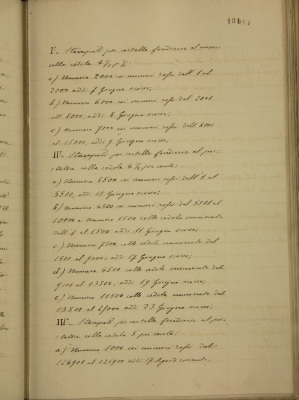 I°. Stampati per cartelle fondiarie al
colla cedola 4 % :
a) Numero 2000 in numeri rossi dall' 1 al
2000 addì 7 Giugno
b) Numero 6000 in numeri rossi dal 2001
all' 8000, addì 8 Giugno
c) Numero 7000 in numeri rossi dall' 8001
al 15000, addì 9 Giugno
II°. Stampati per cartelle fondiarie al por-
tatore colla cedola 4 ½ per cento:
a) Numero 5500 in numeri rossi dall' 1 al
5500, addì 10 Giugno
b) Numero 4500 in numeri rossi dal 5501 al
10000 e Numero 1500 colla cedola numerata
dall' 1 al 1500, addì 11 Giugno
c) Numero 7500 colla cedola numerata dal
1501 al 9000, addì 17 Giugno
d) Numero 4500 colla cedola numerata dal
9001 al 13500, addì 19 Giugno
e) Numero 11500 colla cedola numerata dal
13501 al 25000 addì 23 Giugno
III°. Stampati per cartelle fondiarie al por-
tatore colla cedola 5 per cento:
a) Numero in numeri rossi dal
al addì 17 Agosto corrente,